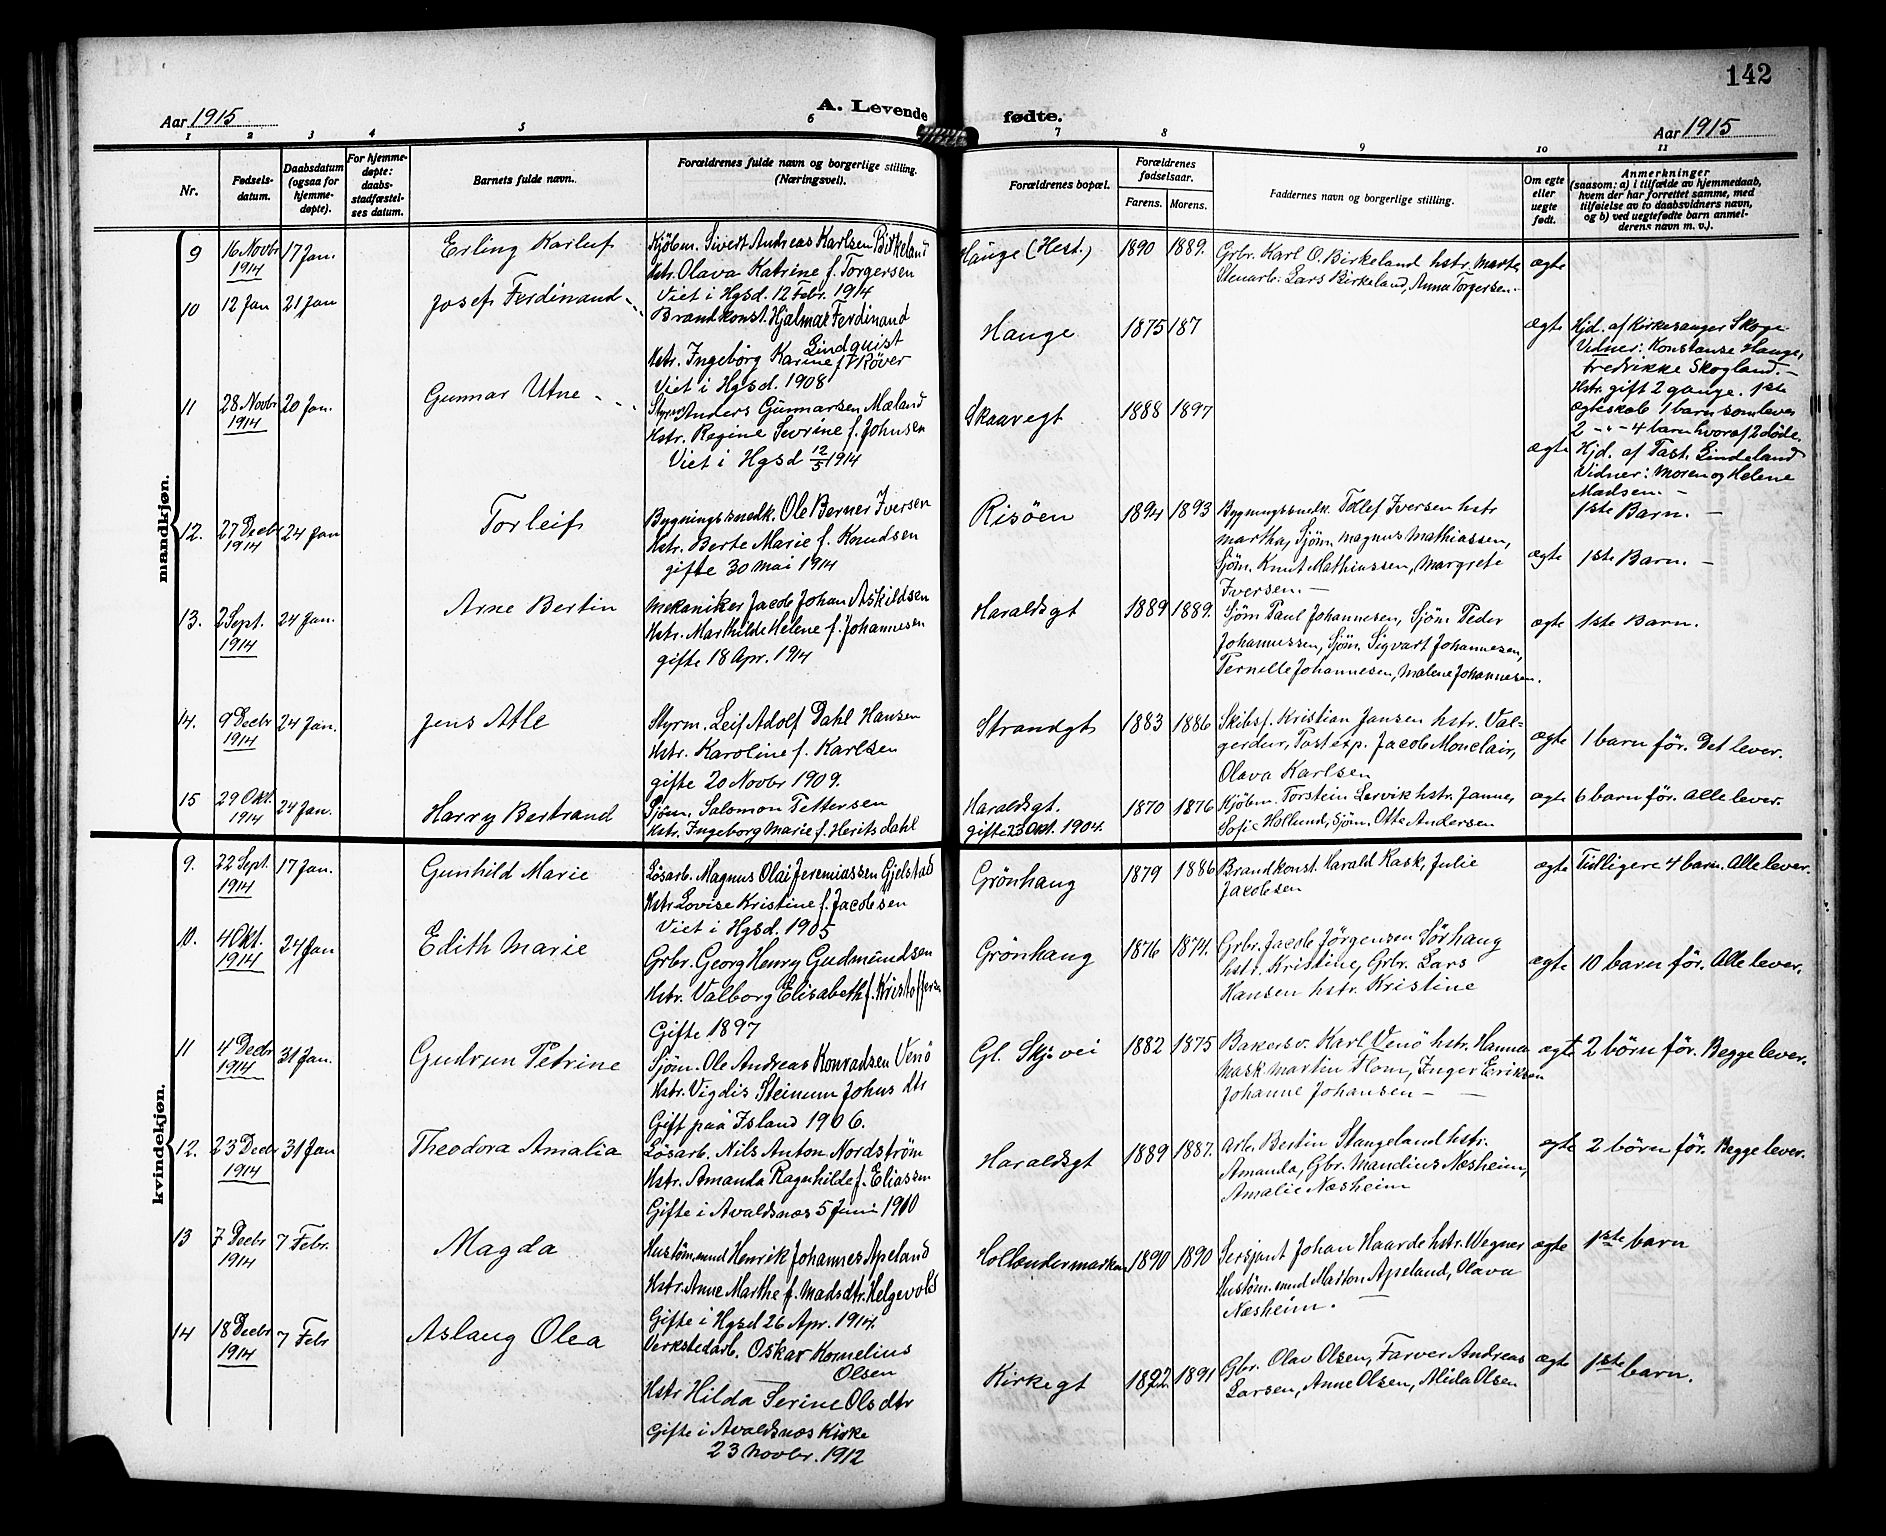 142
Aar 1915
A. Levende
fødte.
Aar 1915
1 2 3 4 5 6 7 8 9 10 11
Nr.
Fødsels-
datum.
Daabsdatum
(ogsaa for
hjemme-
døpte).
For hjemme-
døpte:
daabs-
stadfæstel-
ses datum.
Barnets fulde navn.
Forældrenes fulde navn og borgerlige stilling.
(Næringsvei).
Forældrenes bopæl.
Forældrenes
fødselsaar.
Farens. Morens.
Faddernes navn og borgerlige stilling.
Om egte
eller
uegte
født.
Anmerkninger
(saasom: a) i tilfælde av hjemmedaab,
hvem der har forrettet samme, med
tilføielse av to daabsvidners navn,
og b) ved uegtefødte barn anmel-
derens navn m. v.).
mandkjøn.
9 16 Novbr 1914 17 Jan. Erling Karluf
Kjøbm. Sivert Andreas Karlsen Birkeland
Hstr. Olava Katrine f. Torgersen
Viet i Hgsd. 12 Febr. 1914
Hauge (Hest.) 1890 1889.
Grbr. Karl O. Birkeland hstr. Marta,
Stenarb. Lars Birkeland, Anna Torgersen.
ægte
10 12 Jan 21 Jan Josef Ferdinand
Brandkonst. Hjalmar Ferdinand
Lindquist
Hstr. Ingeborg Karine f. Røver
Viet i Hgsd. 1908
Hauge 1875 187
ægte
Hjd. af Kirkesanger Skoge
Vidner: Konstanse Hauge,
Fredrikke Skogland. -
Hstr. gift 2 gange. 1ste
ægteskab 1 barn som lever
2 - " - 4 barn hvoraf 2 døde.
11 28 Novbr 1914 20 Jan. Gunnar Utne
Styrm. Anders Gunnarsen Mæland
Hstr. Regine Sevrine f. Johnsen
Viet i Hgsd 12/5 1914
Skaaregt 1888 1897
ægte
Hjd. af Past. Lindeland
Vidner: Moren og Helene
Madsen. -
1ste Barn. -
12. 27 Decbr 1914 24 Jan Torleif
Bygningssnedk. Ole Berner Iversen
Hstr. Berte Marie f. Knudsen
gifte 30 Mai 1914
Risøen 1894 1893
Bygningssnedk. Tollef Iversen hstr
Martha, Sjøm. Magnus Mathiassen,
Sjøm. Knut Mathiassen, Margrete
Iversen. -
ægte 1ste Barn. -
13. 2 Sept. 1914 24 Jan. Arne Bertin
Mekaniker Jacob Johan Askildsen
Hstr. Marthilde Helene f. Johannesen
gifte 18 Apr. 1914
Haraldsgt 1889 1889.
Sjøm Paul Johannesen, Sjøm Peder
Johannessen, Sjøm. Sigvart Johannesen,
Pernille Johannesen, Malene Johannesen.
ægte 1ste Barn.
14. 9 Decbr 1914 24 Jan. Jens Atle
Styrm. Leif Adolf Dahl Hansen
Hstr. Karoline f. Karlsen
gifte 20 Novbr 1909.
Strandgt 1883 1886
Skibsf. Kristian Jansen hstr. Val-
gerdur, Postexp. Jacob Monclair,
Olava Karlsen
ægte 1 barn før. Det lever.
15 29 Okt. 1914 24 Jan. Harry Bertrand
Sjøm. Salomon Pettersen
Hstr. Ingeborg Marie f. Heritsdahl
Haraldsgt.
gifte 23 Okt. 1904.
1870 1876
Kjøbm. Torstein Lervik hstr. Janna,
Sofie Hollund, Sjøm. Otto Andersen
ægte 6 barn før. Alle lever.
kvindekjøn.
9. 22 Sept. 1914 17 Jan. Gunhild Marie
Løsarb. Magnus Olai Jeremiassen Gjelstad
Hstr Lovise Kristine f. Jacobsen
Viet i Hgsd. 1905
Grönhaug 1879 1886
Brandkonst. Harald Rask, Julie
Jacobsen
ægte Tidligere 4 barn. Alle lever.
10. 4 Okt. 1914 24 Jan Edith Marie
Grbr. Georg Henry Gudmundsen
Hstr. Valborg Elisabeth f. Kristoffersen
Gifte 1897
Grönhaug 1876 1874.
Grbr. Jacob Jörgensen Sørhaug
hstr. Kristine, Grbr. Lars
Hansen hstr. Kristine
ægte 10 barn før. Alle lever.
11 4 Decbr 1914 31 Jan. Gudrun Petrine
Sjøm. Ole Andreas Konradsen Venö
Hstr. Vigdis Steinum Johns dtr
Gift paa Island 1906.
Gl. Skj. vei 1882 1875
Bakersv. Karl Venö hstr. Hanna
Mask Martin Flom, Inger Eriksen
Johanne Johansen -
ægte 2 börn før. Begge lever.
12. 23 Decbr 1914 31 Jan Theodora Amalia
Løsarb. Nils Anton Nordström
Hstr. Amanda Ragnhilde f. Eliassen
Gifte i Avaldsnæs 5 Juni 1910
Haraldsgt 1889 1887.
Arb. Bertin Stangeland hstr.
Amanda, Gbr. Mandius Næsheim,
Amalie Næsheim
ægte 2 börn før. Begge lever.
13 7 Decbr 1914 7 Febr. Magda
Hustømmmd Henrik Johannes Apeland
Hstr. Anne Marthe f. Madsdtr. Helgevold
Gifte i Hgsd 26 Apr. 1914.
Hollendermarken 1890 1890
Sersjant Johan Haarde hstr. Wegner
Hustøm.mmd Marton Apeland, Olava
Næsheim.
ægte 1ste barn
14 18 Decbr 1914 7 Febr Aslaug Olea
Verkstedarb. Oskar Kornelius
Olsen
Hstr Hilda Serine Olsdtr
Gifte i Avaldsnæs Kirke
23 Novbr. 1912
Kirkegt 1892 1891
Gbr. Olav Olsen, Farver Andreas
Larsen, Anne Olsen, Alida Olsen
ægte 1ste barn.